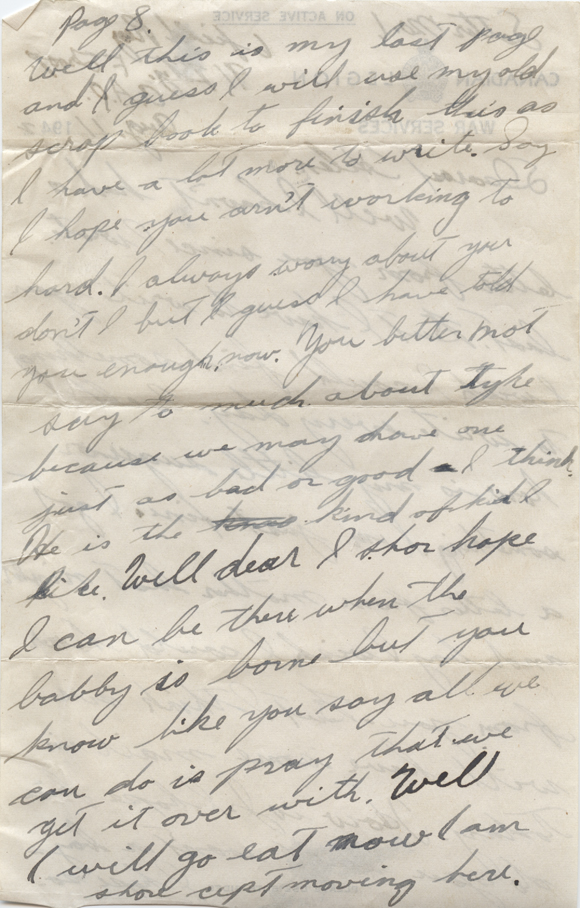 Page 8.
Well this is my last page
and I guess I will use my old
scrap book to finish this as
I have a lot more to write. Say
I hope you arn't working to
hard. I always worry about your
don't I but I guess I have told
you enough now. You better not
say to much about tyke
because we may have one
just as bad or good I think
He is the kind of kid I
like. Well dear I shor hope
I can be there when the
babby is borne but you
know like you say all we
can do is pray that we
get it over with. Well
I will go eat now I am
shor cept moving here.
ON ACTIVE SERVICE
CANADIAN LEGION
WAR SERVICES